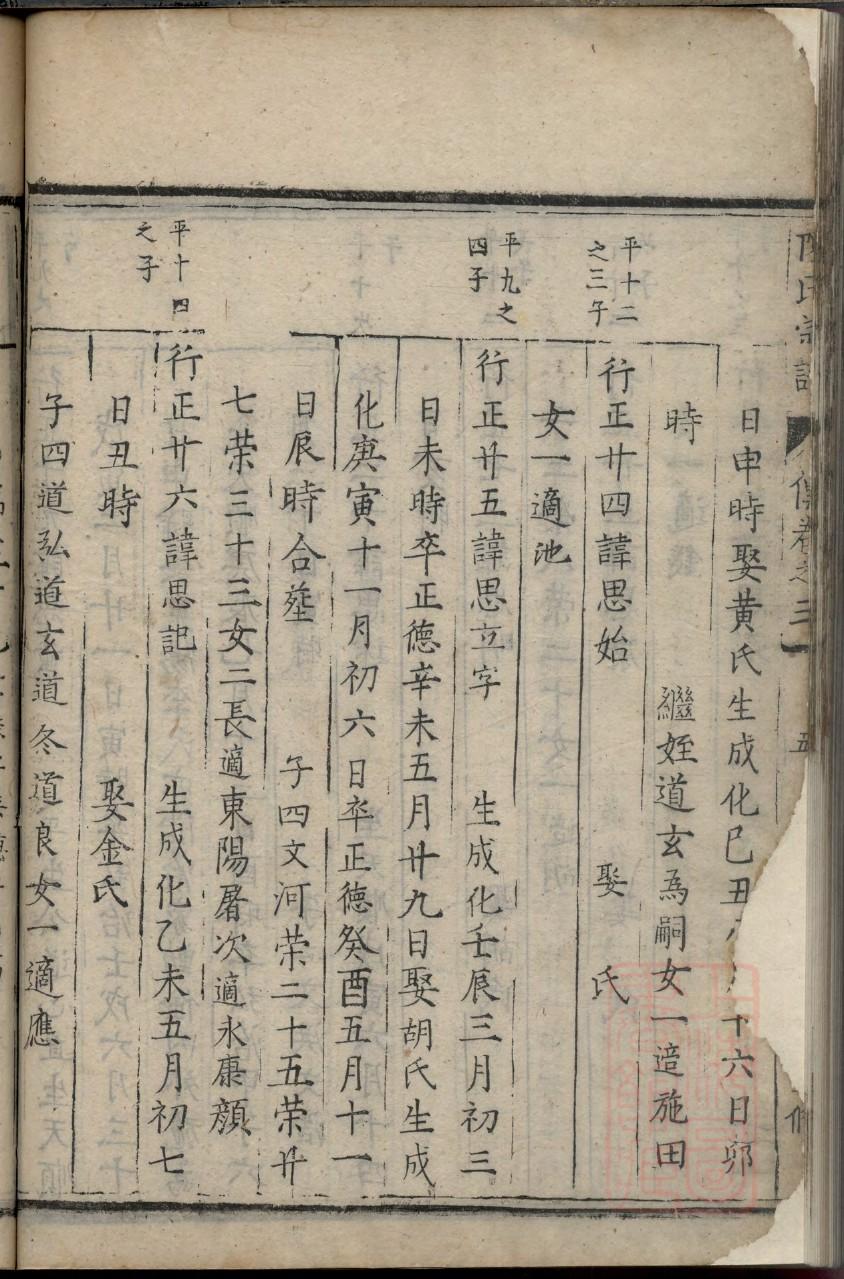 氏宗譜 傳卷之三 五
日申時娶黄氏生成化己丑 十六日卯
時 繼姪道玄為嗣女一適施田
平十二之三子
行正廿四諱思始 娶 氏
女一適池
平九之四子
行正廿五諱思立字 生成化壬辰三月初三
日未時卒正德辛未五月廿九日娶胡氏生成
化庚寅十一月初六日卒正德癸酉五月十一
日辰時合塟 子四文河荣二十五荣廿
七荣三十三女二長適東陽屠次適永康顔
平十四之子
行正廿六諱思記 生成化乙未五月初七
日丑時 娶金氏
子四道弘道玄道冬道良女一適應